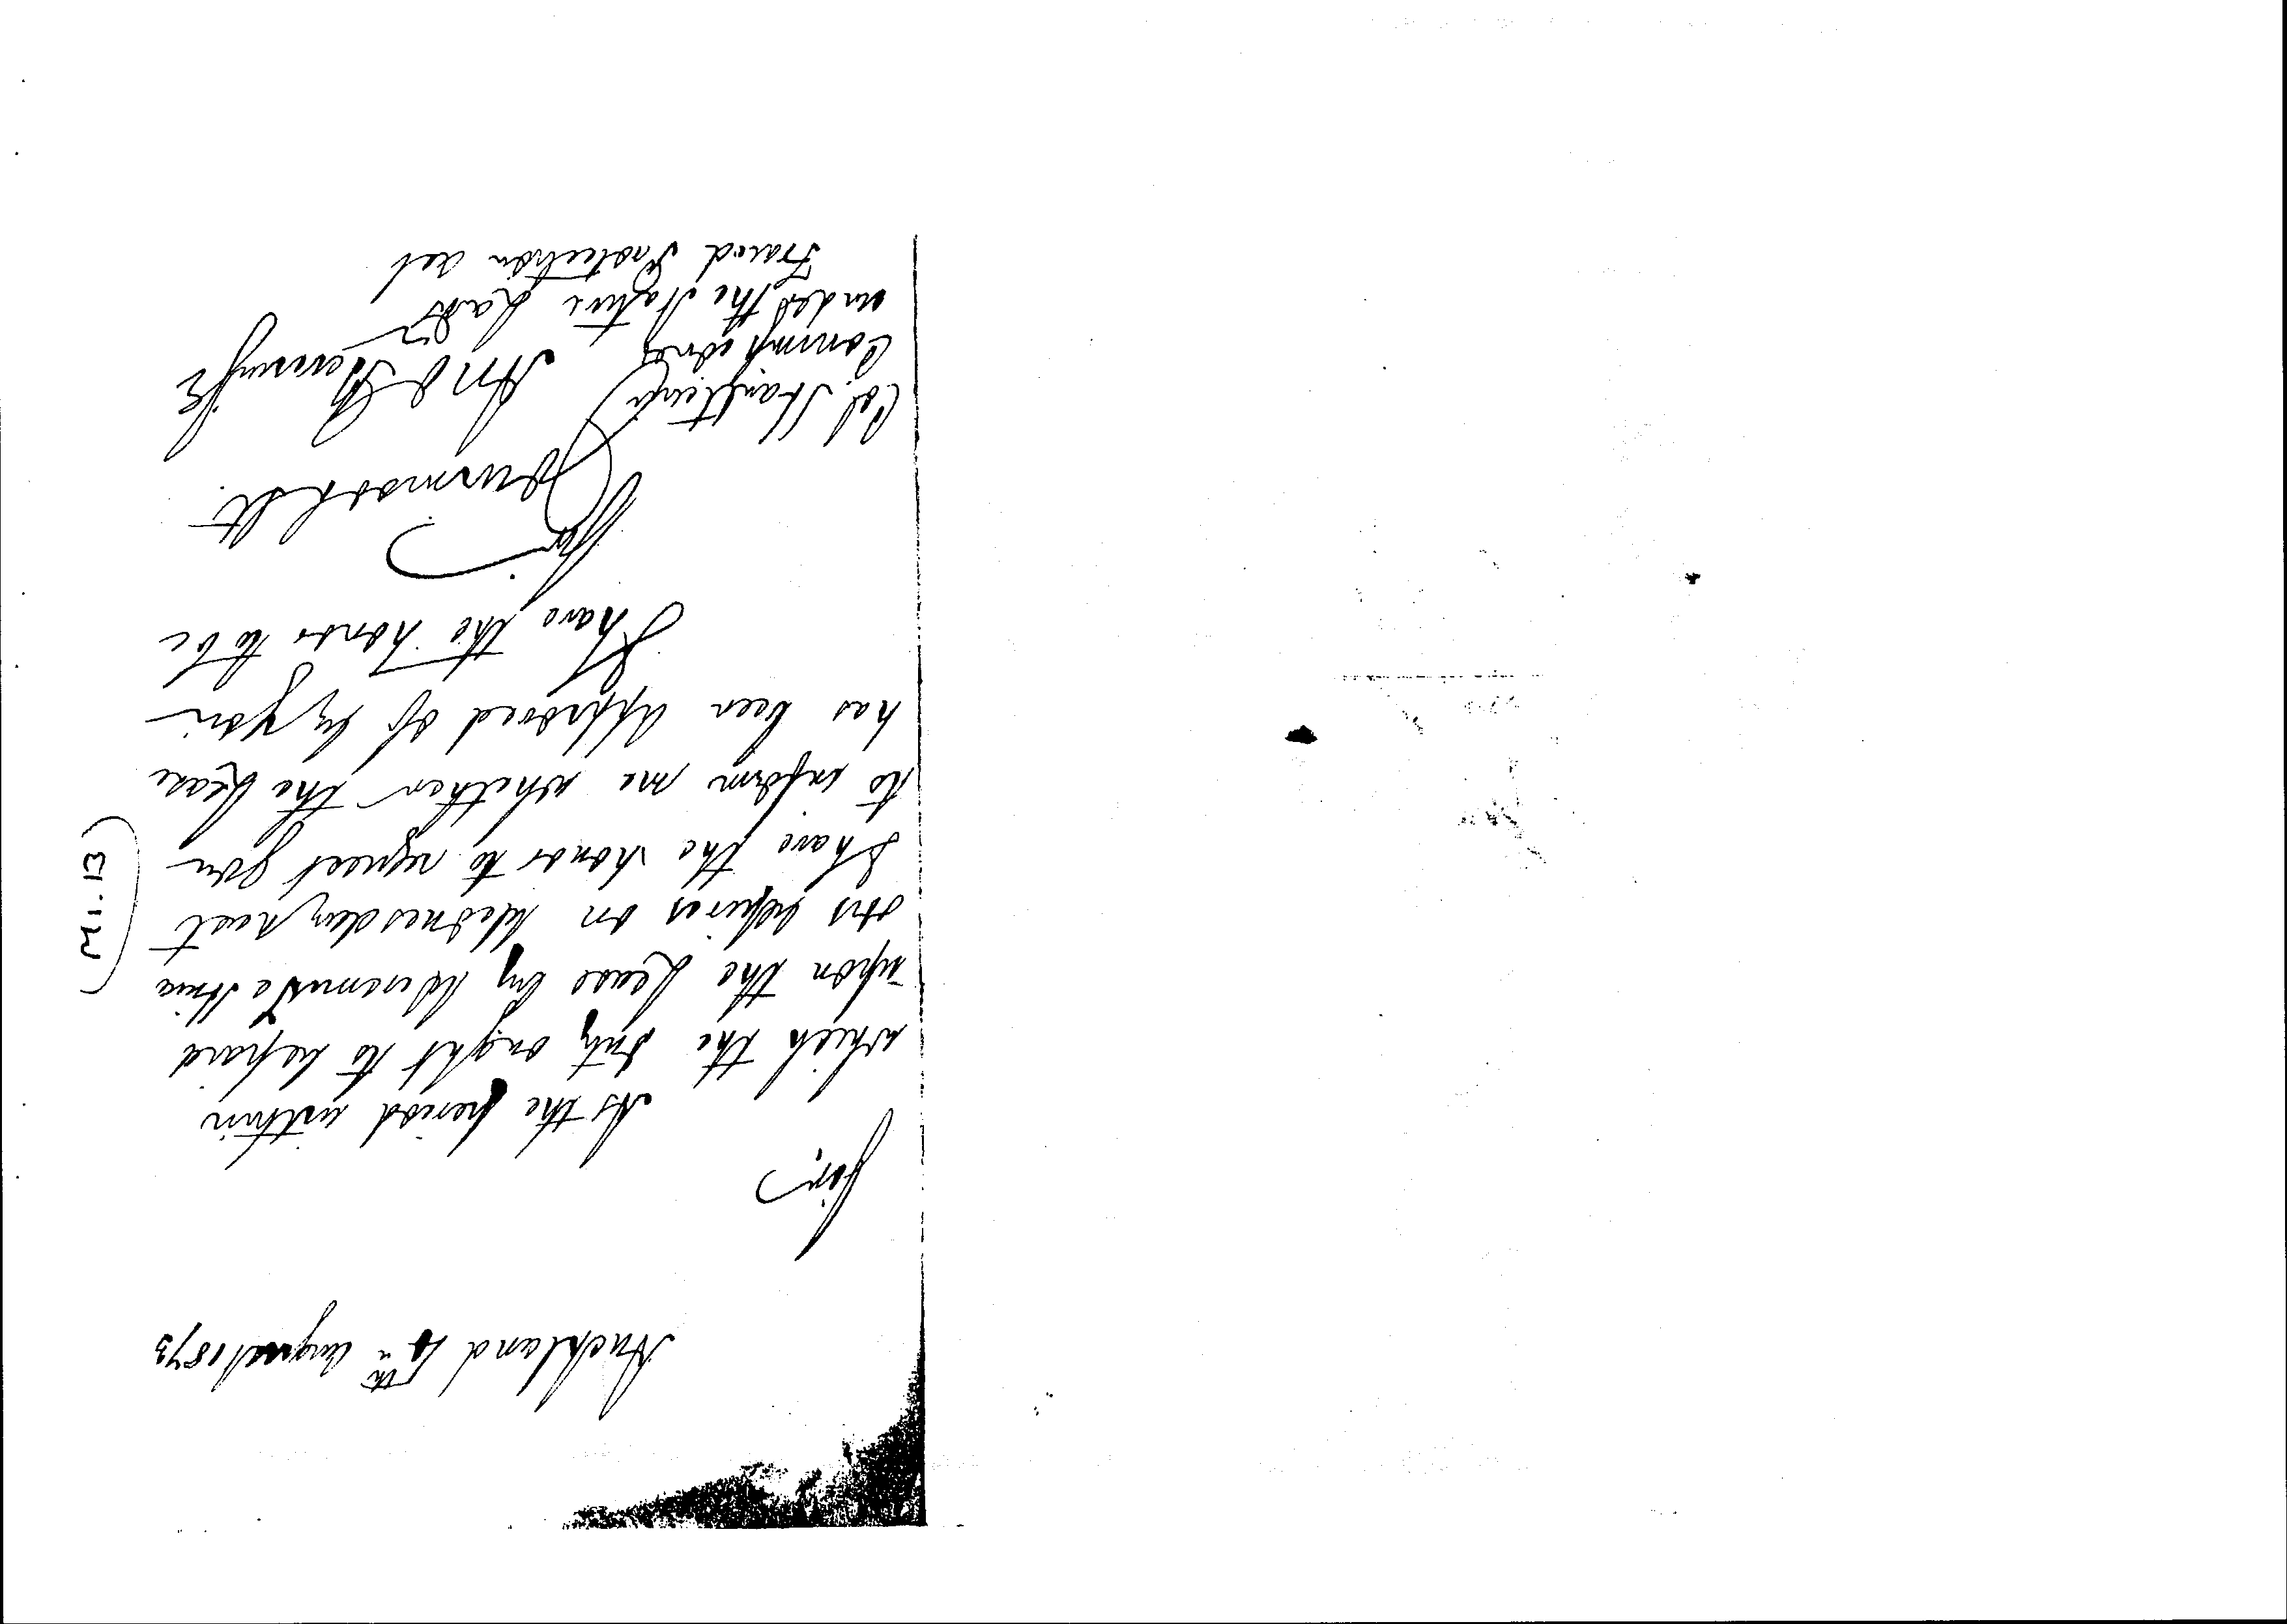 Auckland 4th August 1873
Sir,
As the period within
which the duty ought to be paid
upon the Lease by
expires on Wednesday next
I have the honor to request you
to inform me whether the Lease
has been approved of by you
I have the honor to be
Sir
Your most obt
Col. Haultain
Commissioner
under the Native Lands
Fraud Protection act
M1.13